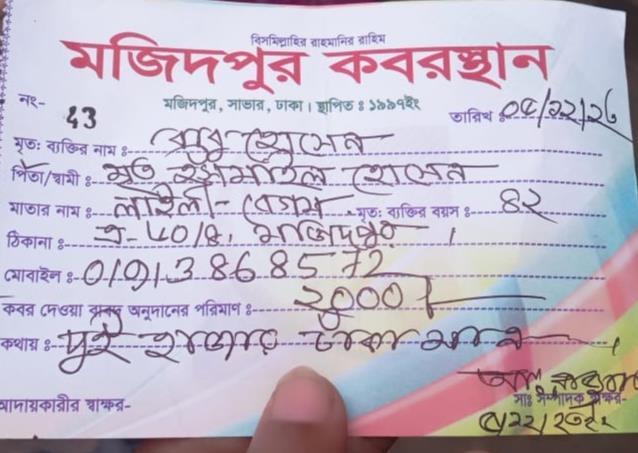 বিসমিল্লাহির রাহমানির রাহিম
মজিদপুর কবরস্থান
মজিদপুর, সাভার, ঢাকা। স্থাপিত ঃ ১৯৯৭ইং
নং- 43 তারিখ ঃ
মৃত: ব্যক্তির নাম ঃ হোসেন
পিতা/স্বামী ঃ মৃত ইসমাইল হোসেন
মাতার নাম ঃ লাইলী বেগম মৃত: ব্যক্তির বয়স ঃ ৪২
ঠিকানা ঃ মজিদপুর।
মোবাইল ঃ 01913868572
কবর দেওয়া বাবদ অনুদানের পরিমাণ ঃ ২০০০/
কথায় ঃ দুই হাজার টাকা মাত্র।
আদায়কারীর স্বাক্ষর- সাঃ সম্পাদক স্বাক্ষর-